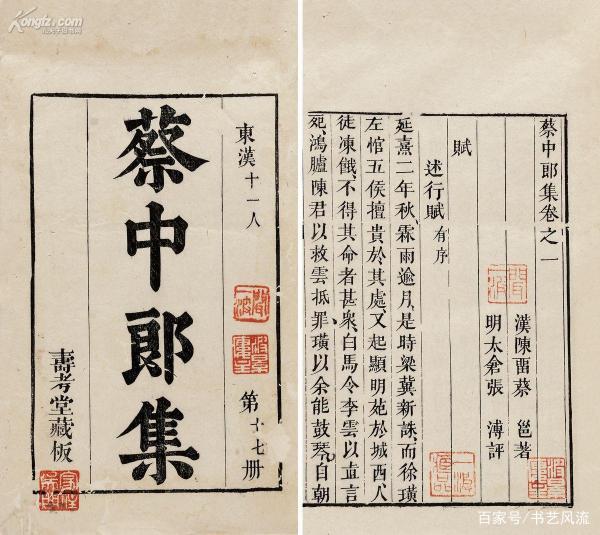 Kongfz.com
東漢十一人
蔡中郎集
第十七册
壽考堂藏板
蔡中郎集卷之一
漢陳留蔡邕著
明太倉張溥評
賦
述行賦有序
延熹二年秋霖雨逾月是時梁冀新誅而徐璜
左悺五侯擅貴於其處又起顯明苑於城西人
徒凍餓不得其命者甚衆白馬令李雲以直言
死鴻臚陳君以救雲抵罪璜以余能鼓琴自朝
百家号/书艺风流